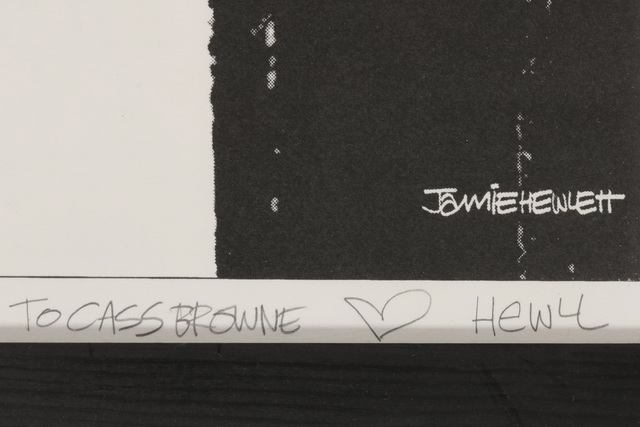 JamieHEWLEtt
To CASS BROWNE ♡ HewLL